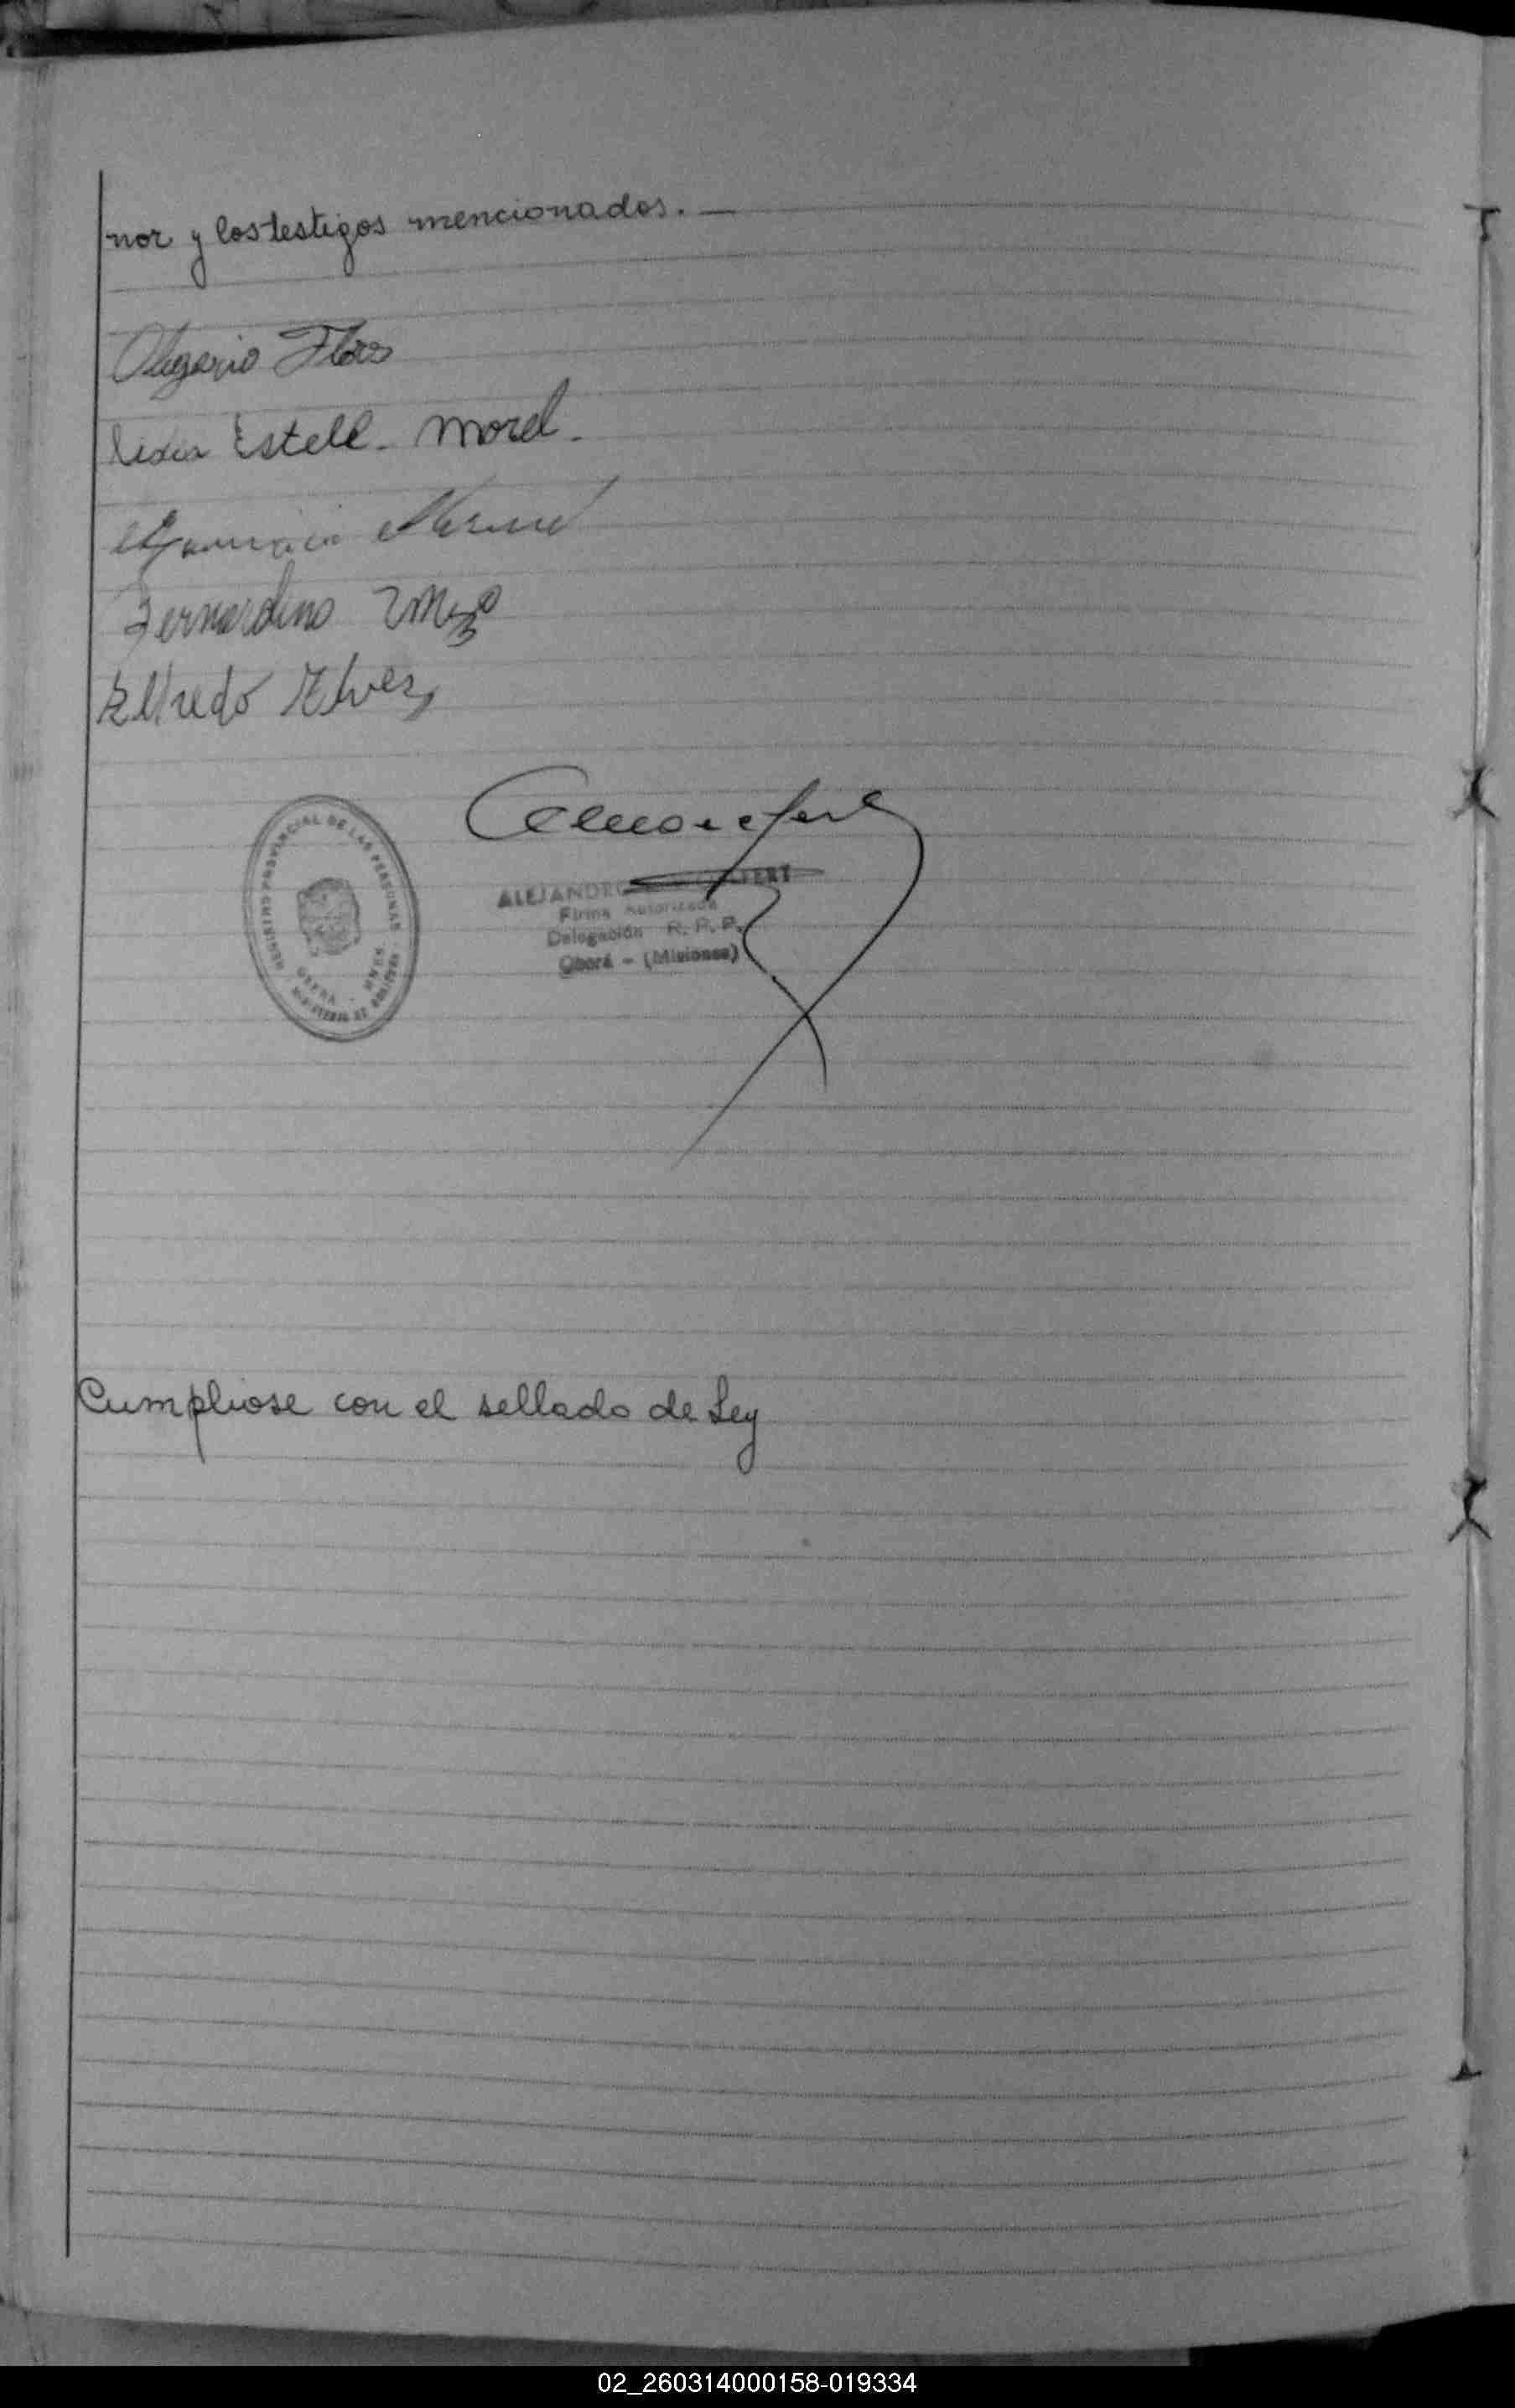 nor y los testigos mencionados. —
Olegario Flores
Estell. Morel.
Bernardino
Alfredo Alvez
REGISTRO PROVINCIAL DE LAS PERSONAS
OBERA - MNES.
MINISTERIO DE GOBIERNO
ALEJANDRO
Firma Autorizada
Delegación R. P. P.
Oberá - (Misiones)
Cumpliose con el sellado de Ley
02_260314000158-019334